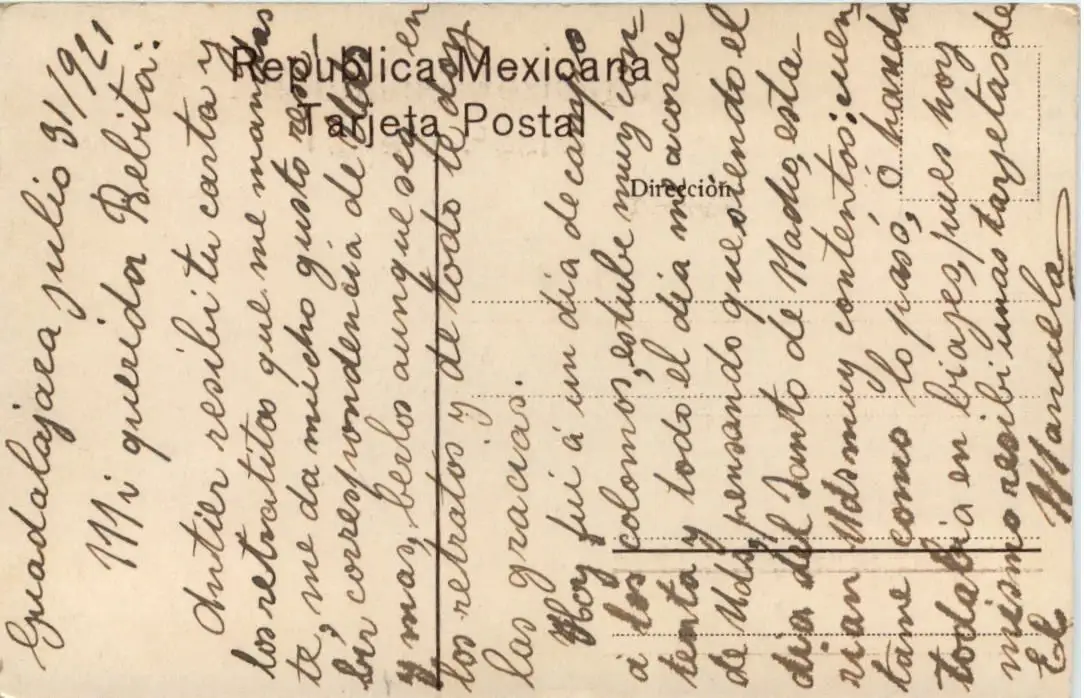 Republica Mexicana
Tarjeta Postal
Dirección
Guadalajara julio 31/921
Mi querida Bebita:
Antier resibi tu carta y
los retratitos que me mandas
te, me da mucho gusto resi-
bir correspondencia de Uds
y mas, berlos aunque sea en
los retratos y de todo te doy
las gracias.
Hoy fui á un dia de campo
á los colomos, estube muy con-
tenta y todo el dia me acorde
de Uds, pensando que siendo el
dia del Santo de Madie, esta-
rian Uds muy contentos; cuen
tame como lo pasó, o handa
todabia en biajes, pues hoy
mismo resibi unas tarjetas de
El Manuela